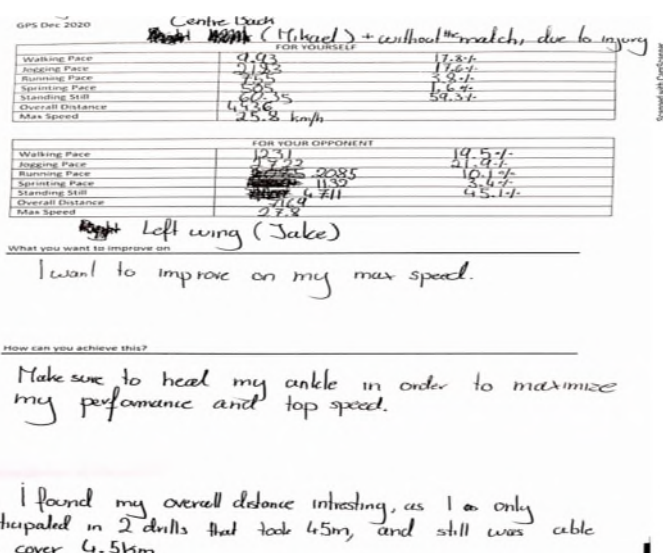 GPS Dec 2020
Centre Back
(Mikael) + without the match, due to injury
FOR YOURSELF
Walking Pace 993 17.8%
Jogging Pace 2193 17.6%
Running Pace 745 3.8%
Sprinting Pace 505 1.6%
Standing Still 59.3%
Overall Distance 4436
Max Speed 25.8 km/h
FOR YOUR OPPONENT
Walking Pace 1231 19.5%
Jogging Pace 2722 21.9%
Running Pace 2085 10.1%
Sprinting Pace 1132 3.4%
Standing Still 4711 45.1%
Overall Distance 7169
Max Speed 27.8
Left wing (Jake)
What you want to improve on
I want to improve on my max speed.
How can you achieve this?
Make sure to heal my ankle in order to maximize
my perfomance and top speed.
I found my overall distance intresting, as I only
ticipated in 2 drills that took 45m, and still was able
cover 4.5km
Scanned with CamScanner